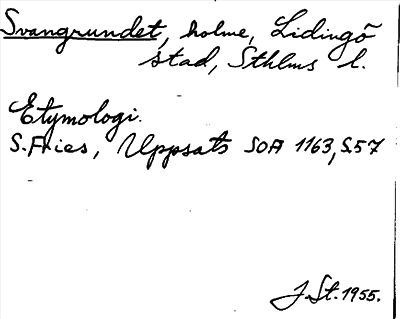 Svangrundet, holme, Lidingö
stad, Sthlms l.
Etymologi.
S.Fries, Uppsats SOA 1163, S.57
J.St. 1955.